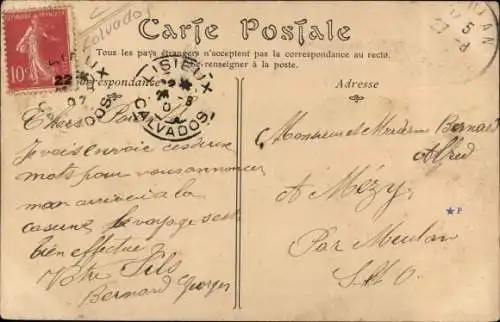 Carte Postale
Tous les pays étrangers n'acceptent pas la correspondance au recto.
se renseigner à la poste.
Correspondance
Adresse
Calvados
10
LISIEUX
CALVADOS
Chers
Je vais envoie ces deux
mots pour vous annoncer
mon arrivée à la
caserne le voyage s'est
bien effectué
Votre Fils
Bernard Georges
Monsieur et Madame Bernard
Alfred
A Mézy
Par Meulan
S. et O.
★P